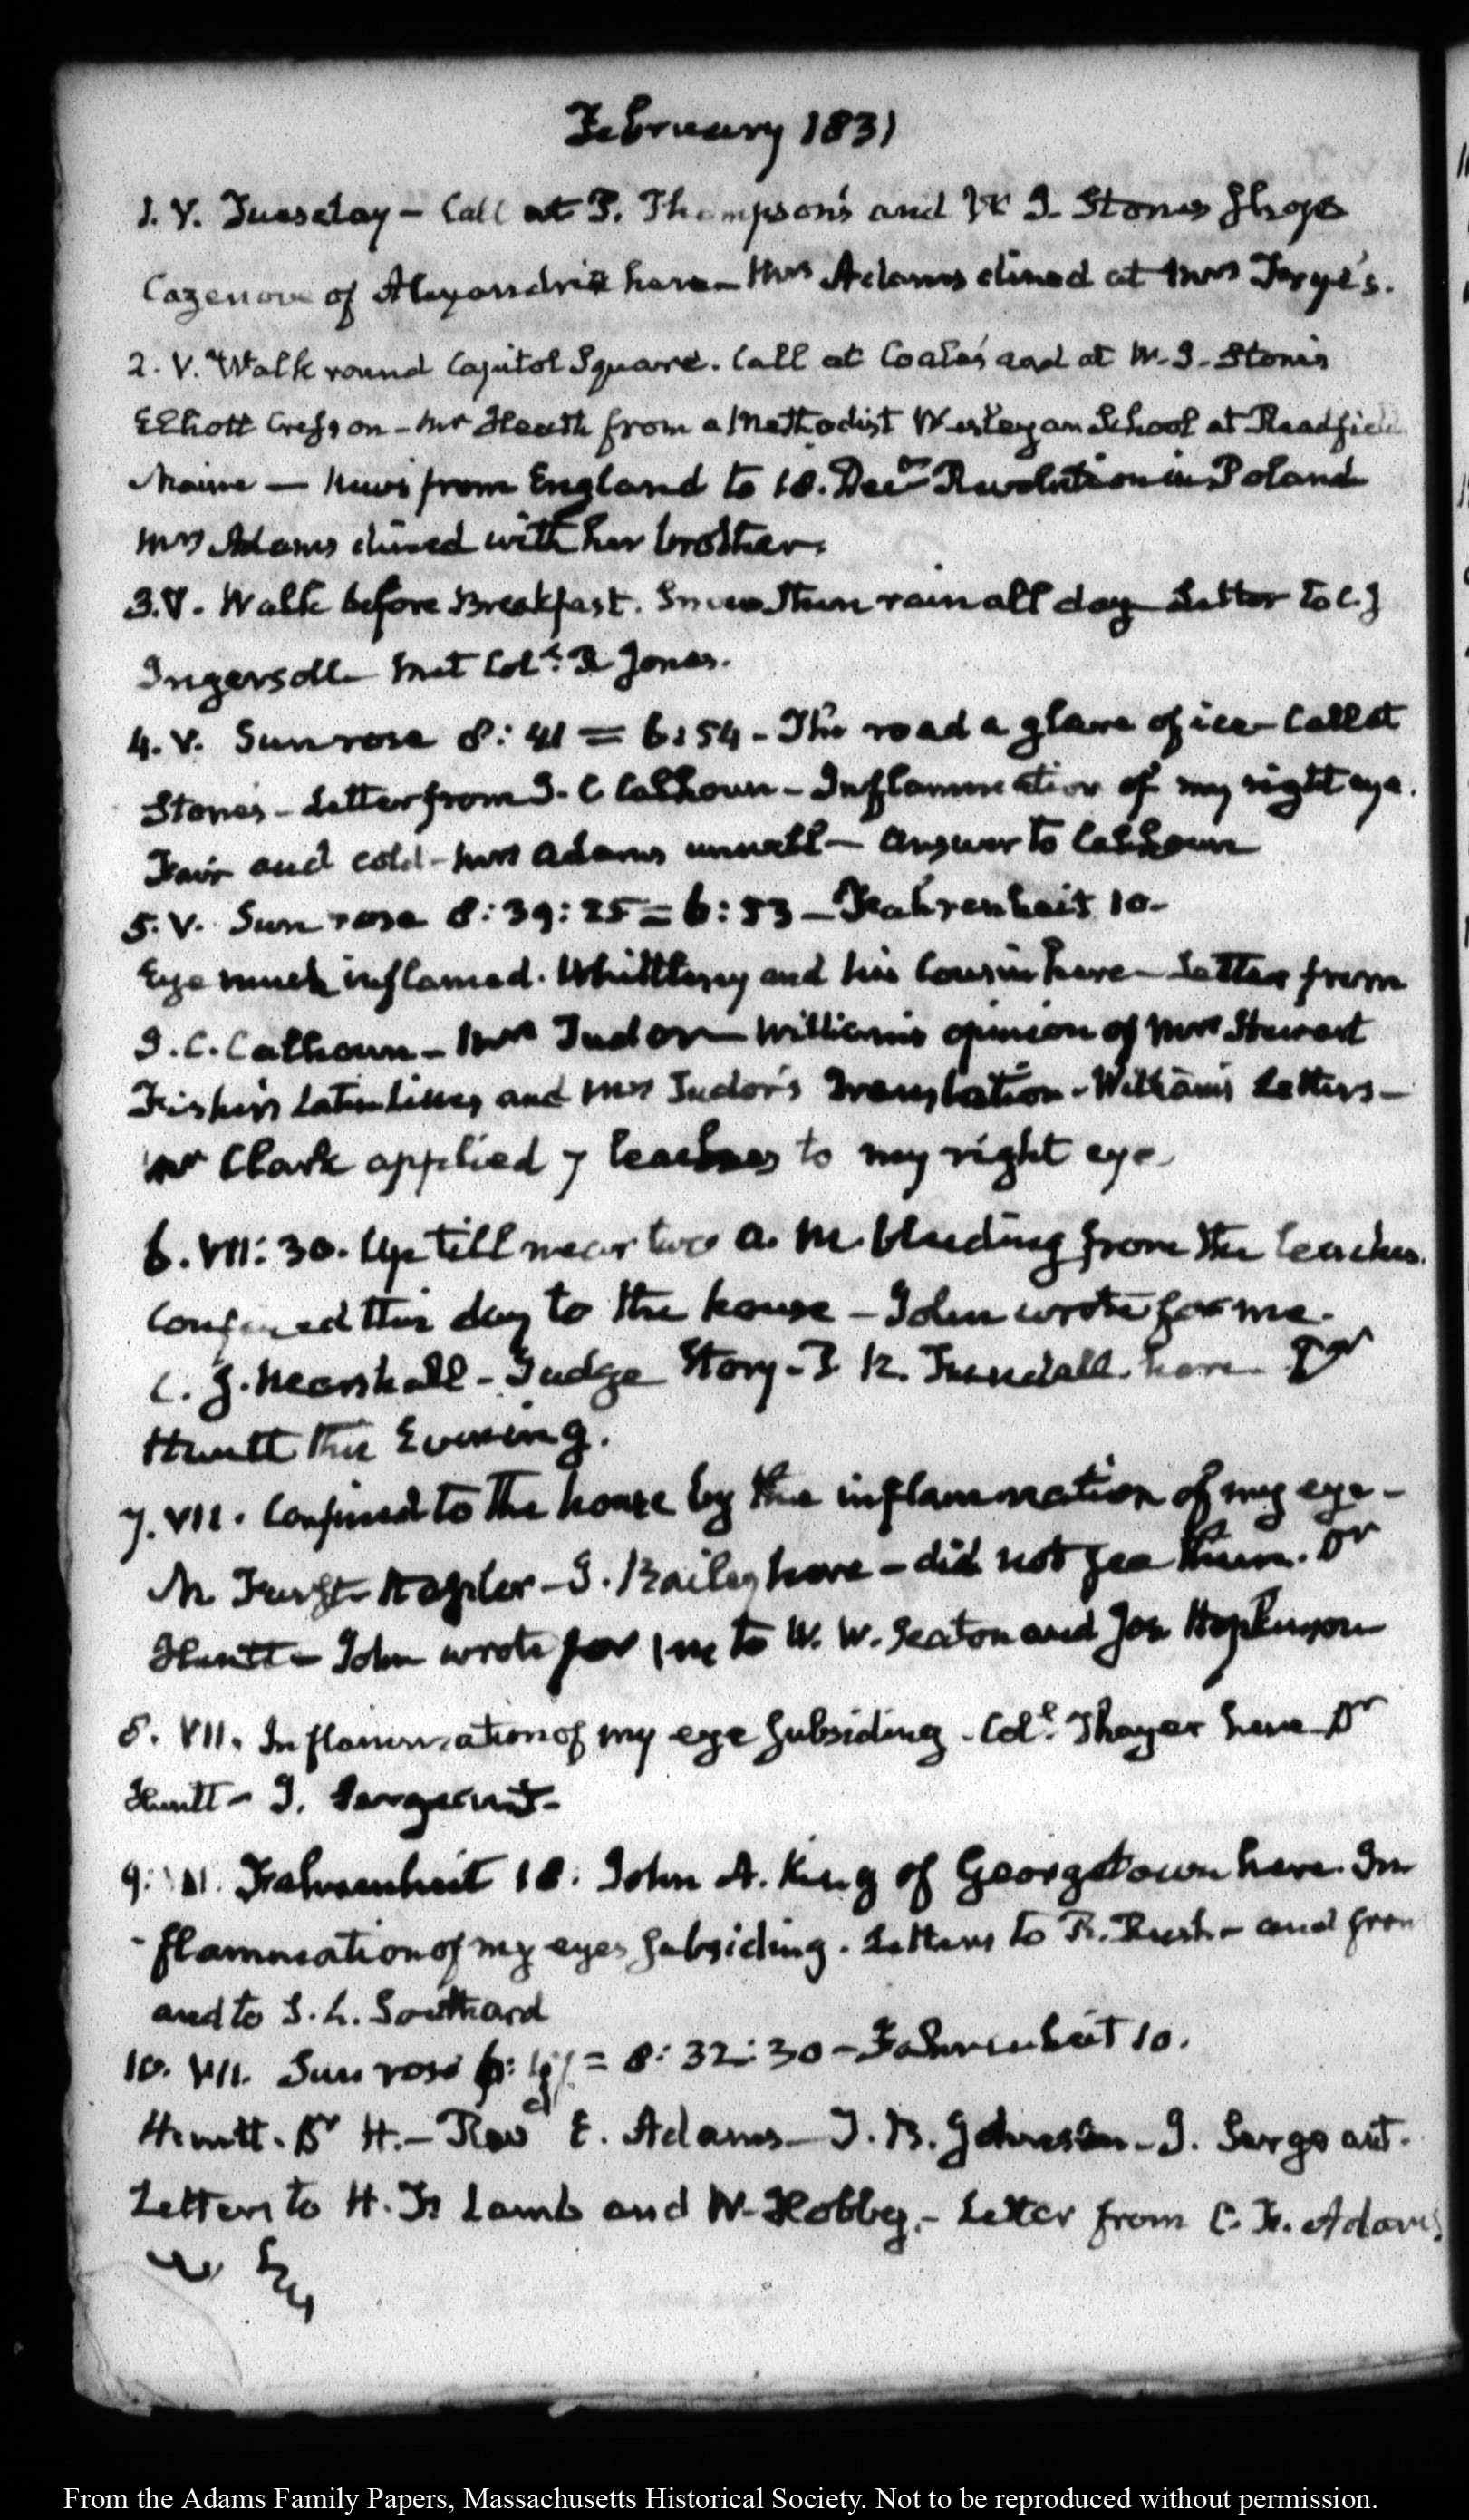 February 1831
1. V. Tuesday – Call at P. Thompson's and W. I. Stone's Shops
Cazenove of Alexandria here – Mrs Adams dined at Mrs Frye's.
2. V. Walk round Capitol Square. Call at Coale's and at W. I. Stone's
Elliott Cresson – Mr Heath from a Methodist Wesleyan School at Readfield
Maine – News from England to 18. Decr Revolution in Poland
Mrs Adams dined with her brother.
3. V. Walk before Breakfast. Snow then rain all day Letter to C. J
Ingersoll – Met Coll. R Jones.
4. V. Sun rose 8:41 = 6:54 – The road a glare of ice – Call at
Stone's – Letter from J. C Calhoun – Inflammation of my right eye.
Fair and cold – Mrs Adams unwell – Answer to Calhoun
5. V. Sun rose 8:39:25 = 6:53 – Fahrenheit 10 –
Eye much inflamed. Whittlesey and his Cousin here – Letter from
J. C. Calhoun – Mrs Tudor – William's opinion of Mrs Stewart
Latin lines and Mrs Tudor's translation – William's Letters –
Mr Clark applied 7 leeches to my right eye
6. VII:30. Up till near two A. M. bleeding from the leeches.
Confined this day to the house – John wrote for me.
C. J. Marshall – Judge Story – here Dr
Huntt this Evening.
7. VII. Confined to the house by the inflammation of my eye –
M. Furst – – J. Bailey here – did not see them. Dr
Huntt – John wrote for me to W. W. Seaton and Jos. Hopkinson
8. VII. Inflammation of my eye subsiding – Coll. Thayer here Dr
Huntt – J. Sergeant –
9. VI. Fahrenheit 18. John A. King of Georgetown here. In
-flammation of my eyes subsiding. Letters to R. Rush – and from
and to S. L. Southard
10. VII. Sun rose 6: = 8:32:30 – Fahrenheit 10.
Huntt. Dr H. – Revd E. Adams – J. R. Johnston – J. Sergeant.
Letters to H. F. Lamb and W. Hobby – Letter from C. F. Adams
From the Adams Family Papers, Massachusetts Historical Society. Not to be reproduced without permission.